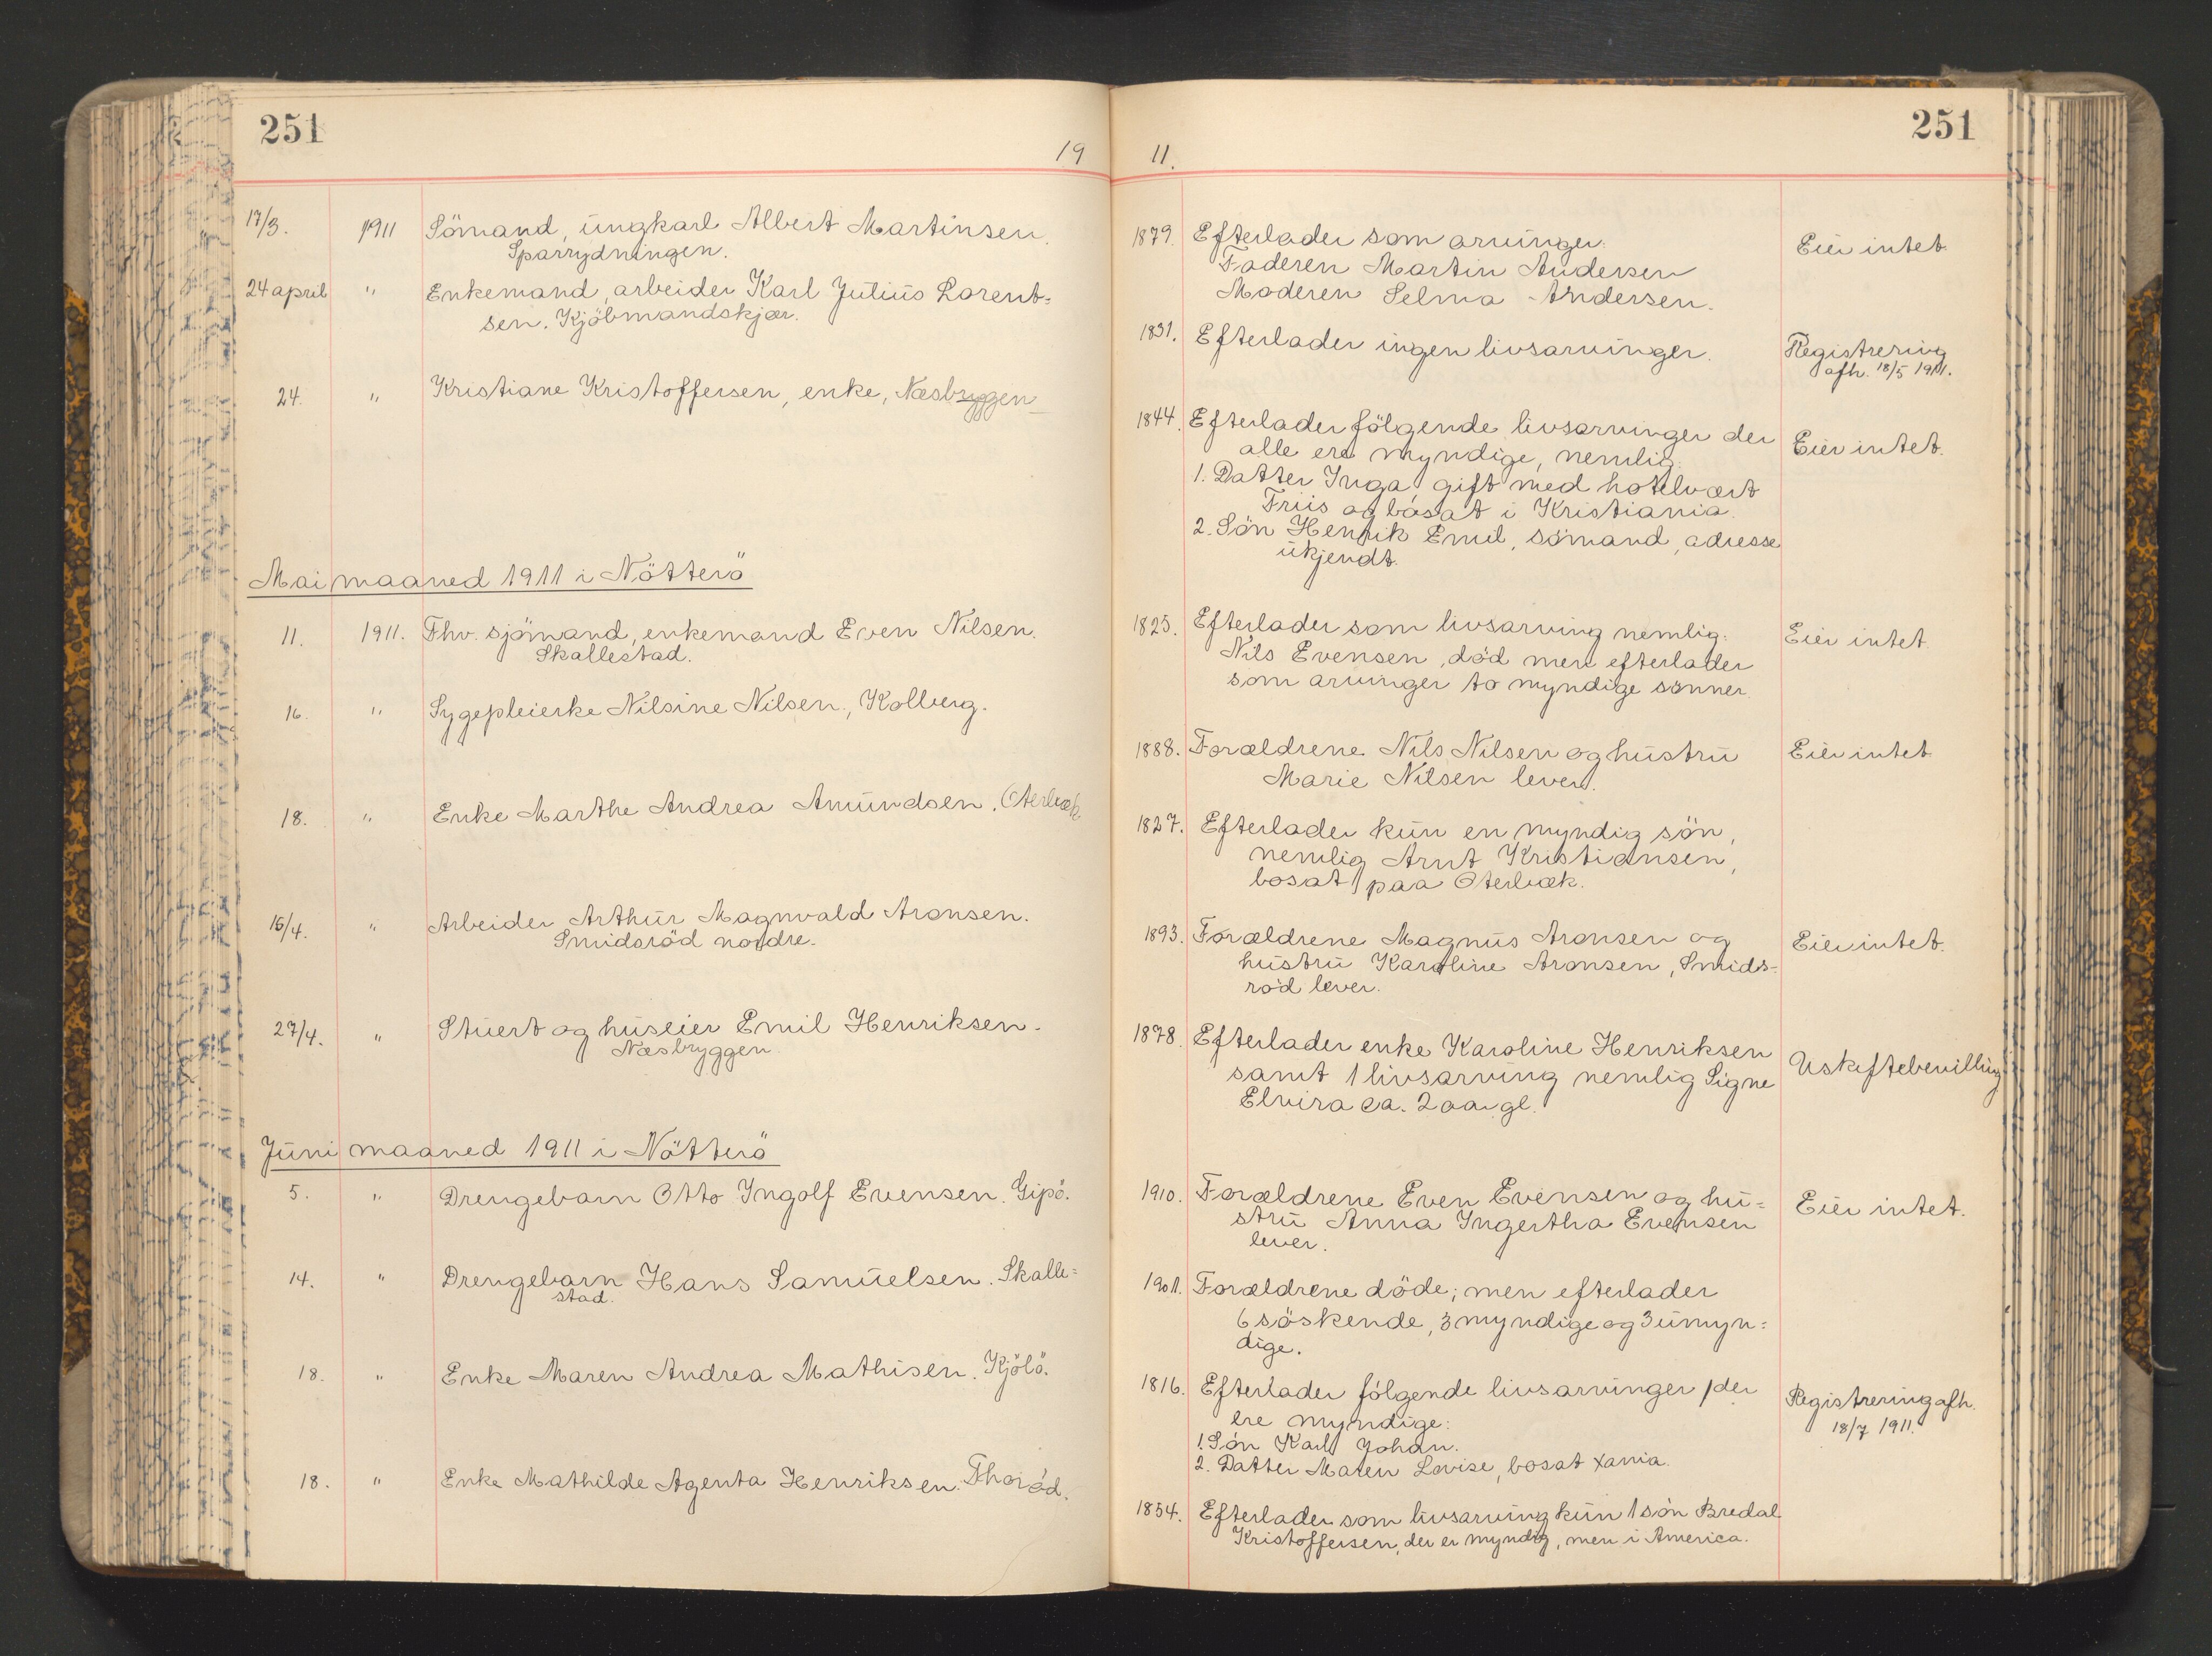 251
19
17/3. 1911 Sömand, ungkarl Albert Martinsen.
Sparrydningen.
24 april " Enkemand, arbeider Karl Julius Lorent=
sen. Kjöbmandskjær.
24. " Kristiane Kristoffersen, enke, Næsbryggen
Mai maaned 1911 i Nötterö
11. 1911. Fhv. sjömand, enkemand Even Nilsen.
Skallestad.
16. " Sygepleierke Nilsine Nilsen, Kolberg.
18. " Enke Marthe Andrea Amundsen. Oterbæk
16/4. " Arbeider Arthur Magnvald Aronsen.
Smidsröd nordre.
27/4. " Stuert og huseier Emil Henriksen.
Næsbryggen
Juni maaned 1911 i Nötterö
5. " Drengebarn Otto Ingolf Evensen. Gipö.
14. " Drengebarn Hans Samuelsen. Skalle=
stad.
18. " Enke Maren Andrea Mathisen. Kjölö.
18. " Enke Mathilde Agenta Henriksen. Thoröd.
251
11.
1879. Efterlader som arvinger:
Faderen Martin Andersen
Moderen Selma Andersen.
1831. Efterlader ingen livsarvinger. Registrering
afh. 18/5 1911.
Eier intet
1844. Efterlader fölgende livsarvinger der
alle ere myndige, nemlig: Eier intet.
1. Datter Inga gift med hotelvært
Friis og bosat i Kristiania.
2. Sön Henrik Emil, sömand, adresse
ukjendt.
1825. Efterlader som livsarving nemlig: Eier intet
Nils Evensen, död men efterlader
som arvinger to myndige sönner.
1888. Forældrene Nils Nilsen og hustru Eier intet
Marie Nilsen lever.
1827. Efterlader kun en myndig sön,
nemlig Arnt Kristiansen,
bosat paa Oterbæk.
1893. Forældrene Magnus Aronsen og Eier intet.
hustru Karoline Aronsen, Smids=
röd lever.
1878. Efterlader enke Karoline Henriksen
samt 1 livsarving nemlig Signe Uskiftebevilling
Elvira ca. 2 aar gl.
1910. Forældrene Even Evensen og hu= Eier intet.
stru Anna Ingertha Evensen
lever.
1901. Forældrene döde; men efterlader
6 söskende, 3 myndige og 3 umyn=
dige.
1816. Efterlader fölgende livsarvinger, der Registrering afh.
ere myndige: 18/7 1911.
1. Sön Karl Johan.
2. Datter Maren Lovise, bosat Xania.
1854. Efterlader som livsarving kun 1 sön Bredal
Kristoffersen, der er myndig, men i America.